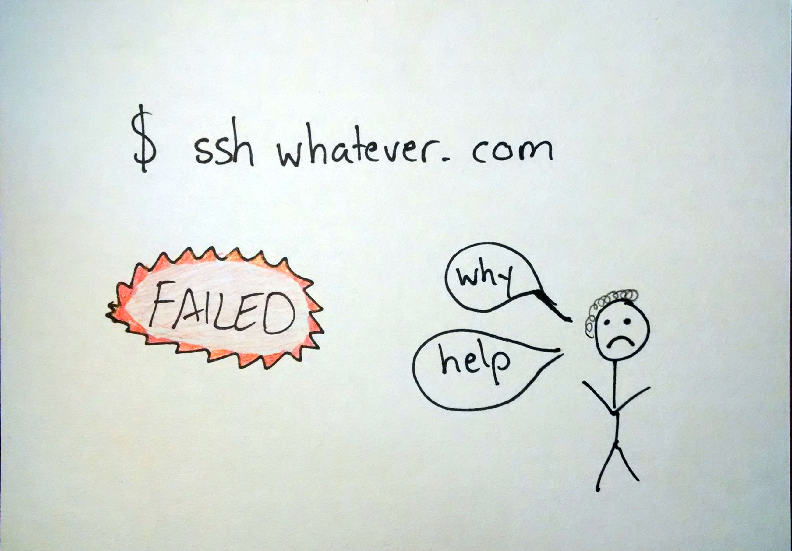 $ ssh whatever. com
FAILED
why
help